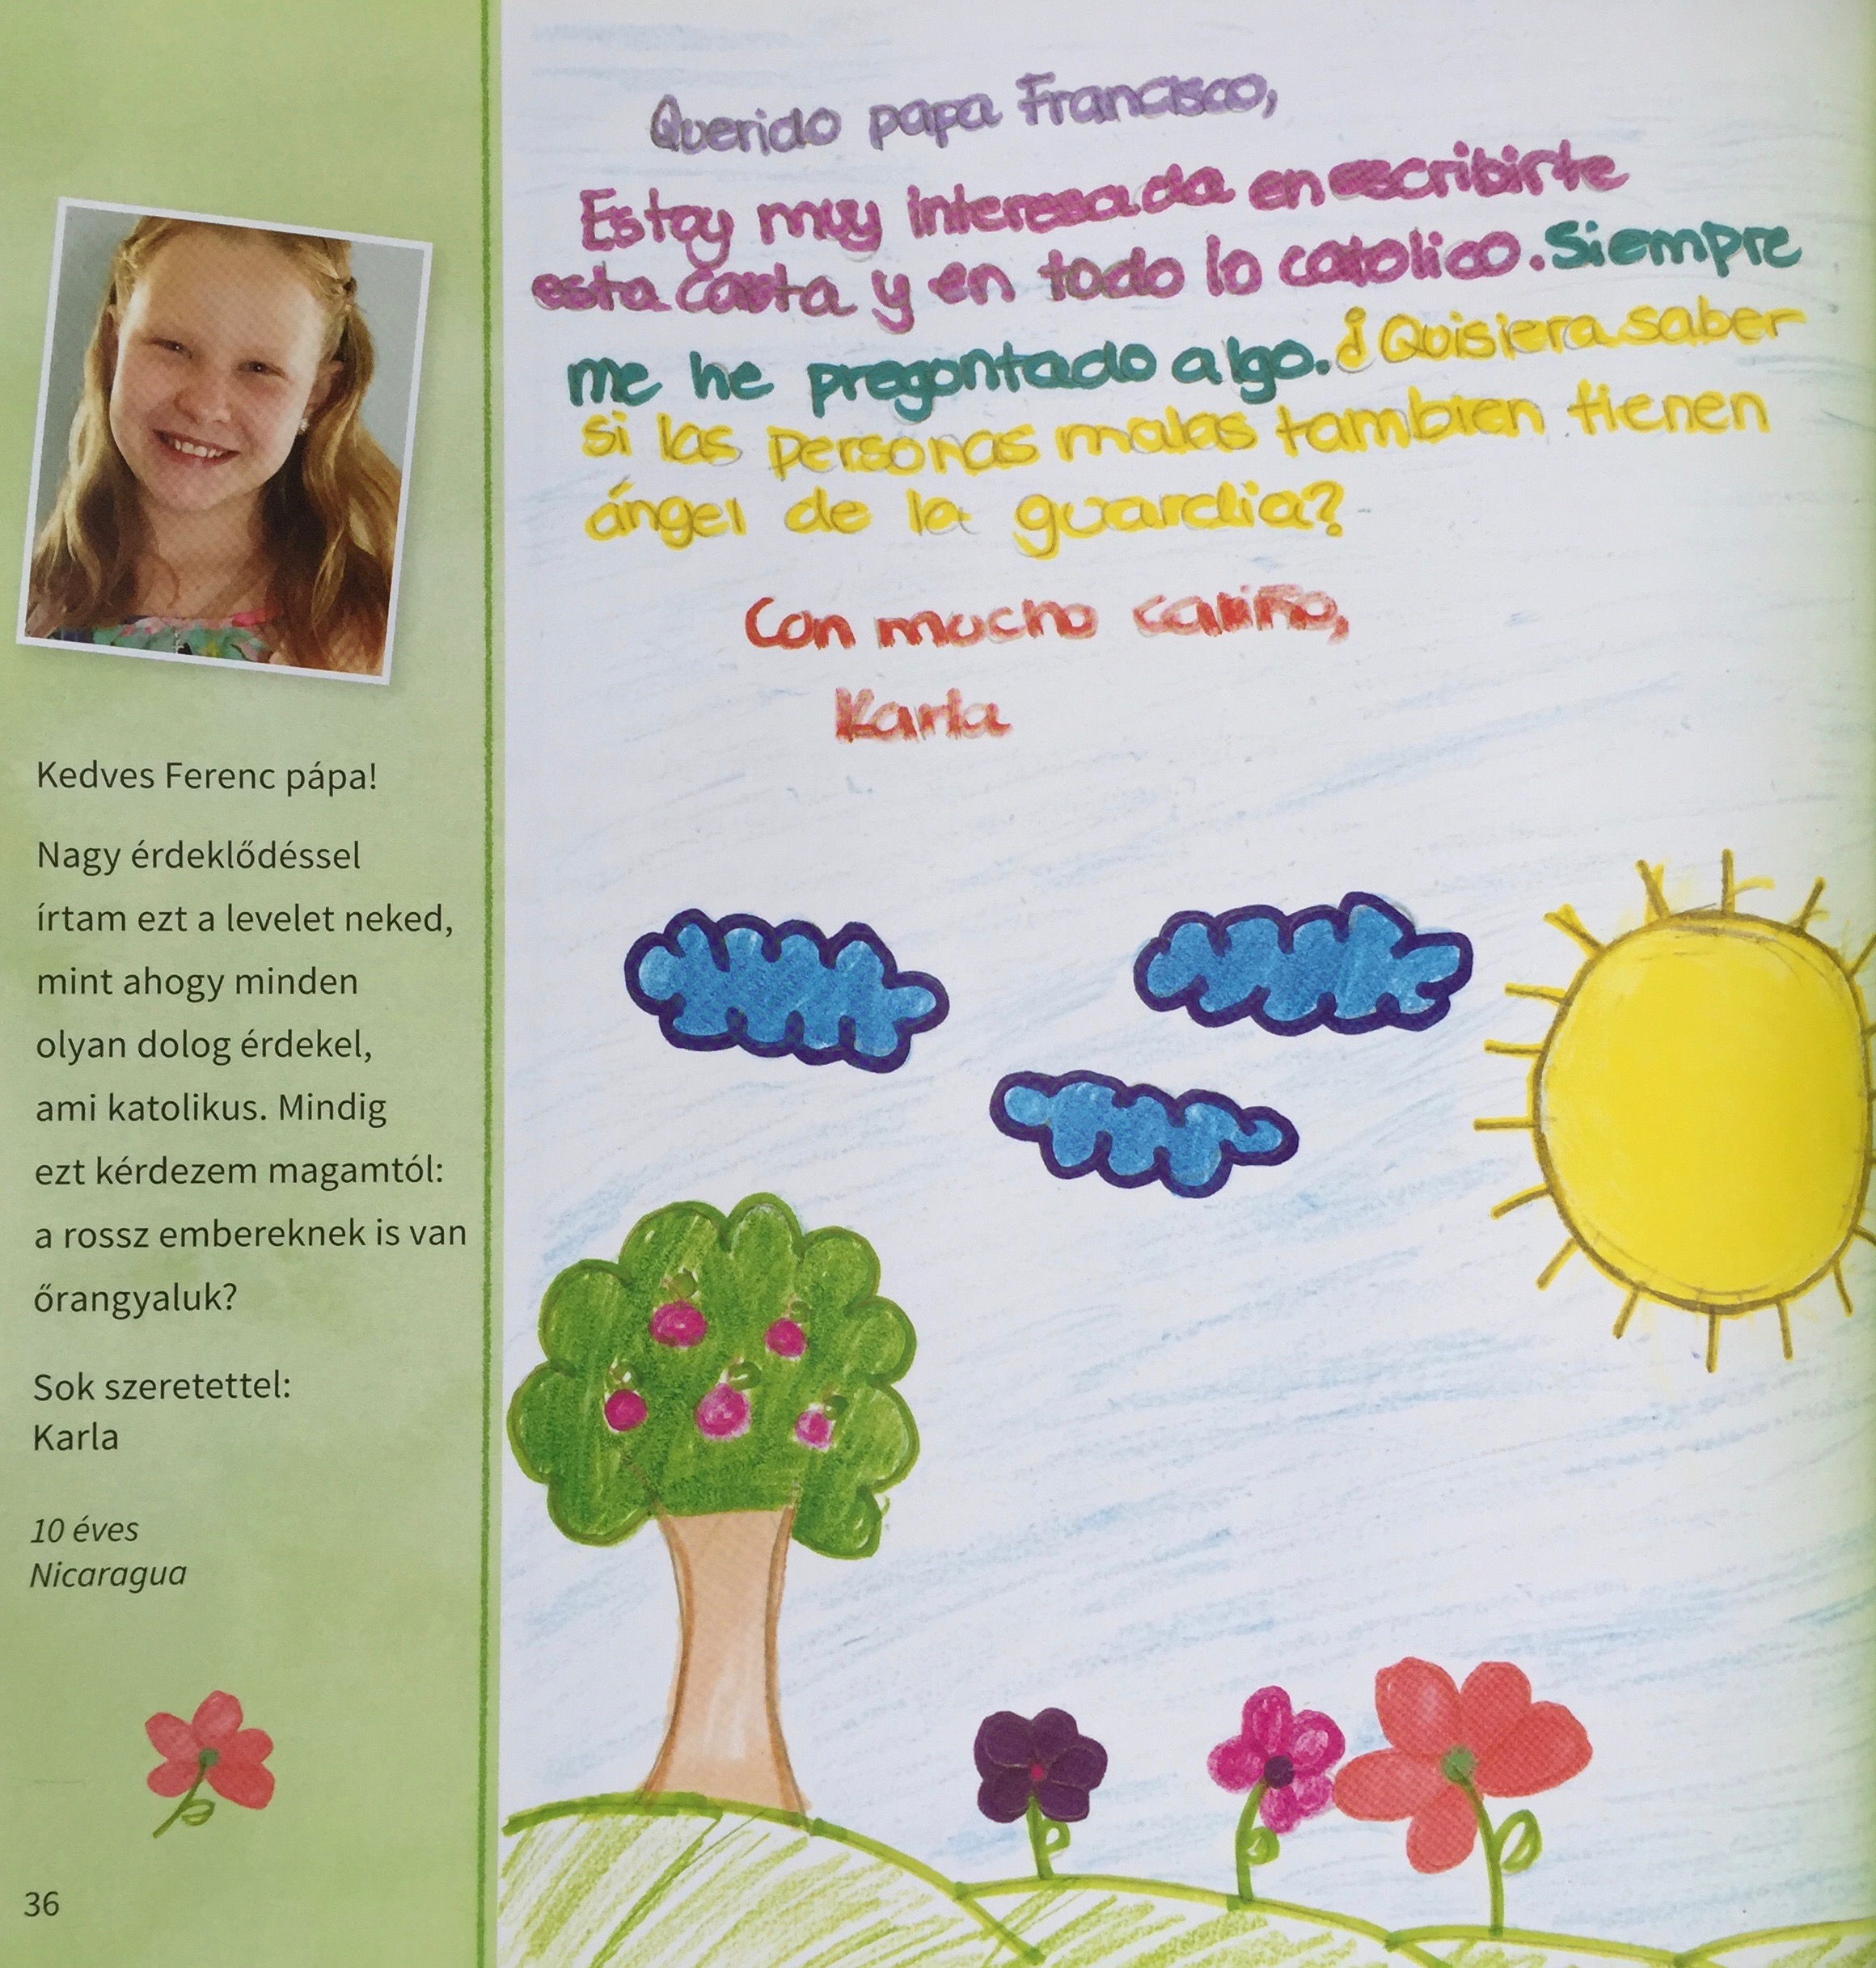 Querido papa Francisco,
Estoy muy interesada en escribirte
esta carta y en todo lo catolico. Siempre
me he pregontado algo. ¿Quisiera saber
si las personas malas tambien tienen
ángel de la guardia?
Con mucho cariño,
Karla
Kedves Ferenc pápa!
Nagy érdeklődéssel
írtam ezt a levelet neked,
mint ahogy minden
olyan dolog érdekel,
ami katolikus. Mindig
ezt kérdezem magamtól:
a rossz embereknek is van
őrangyaluk?
Sok szeretettel:
Karla
10 éves
Nicaragua
36